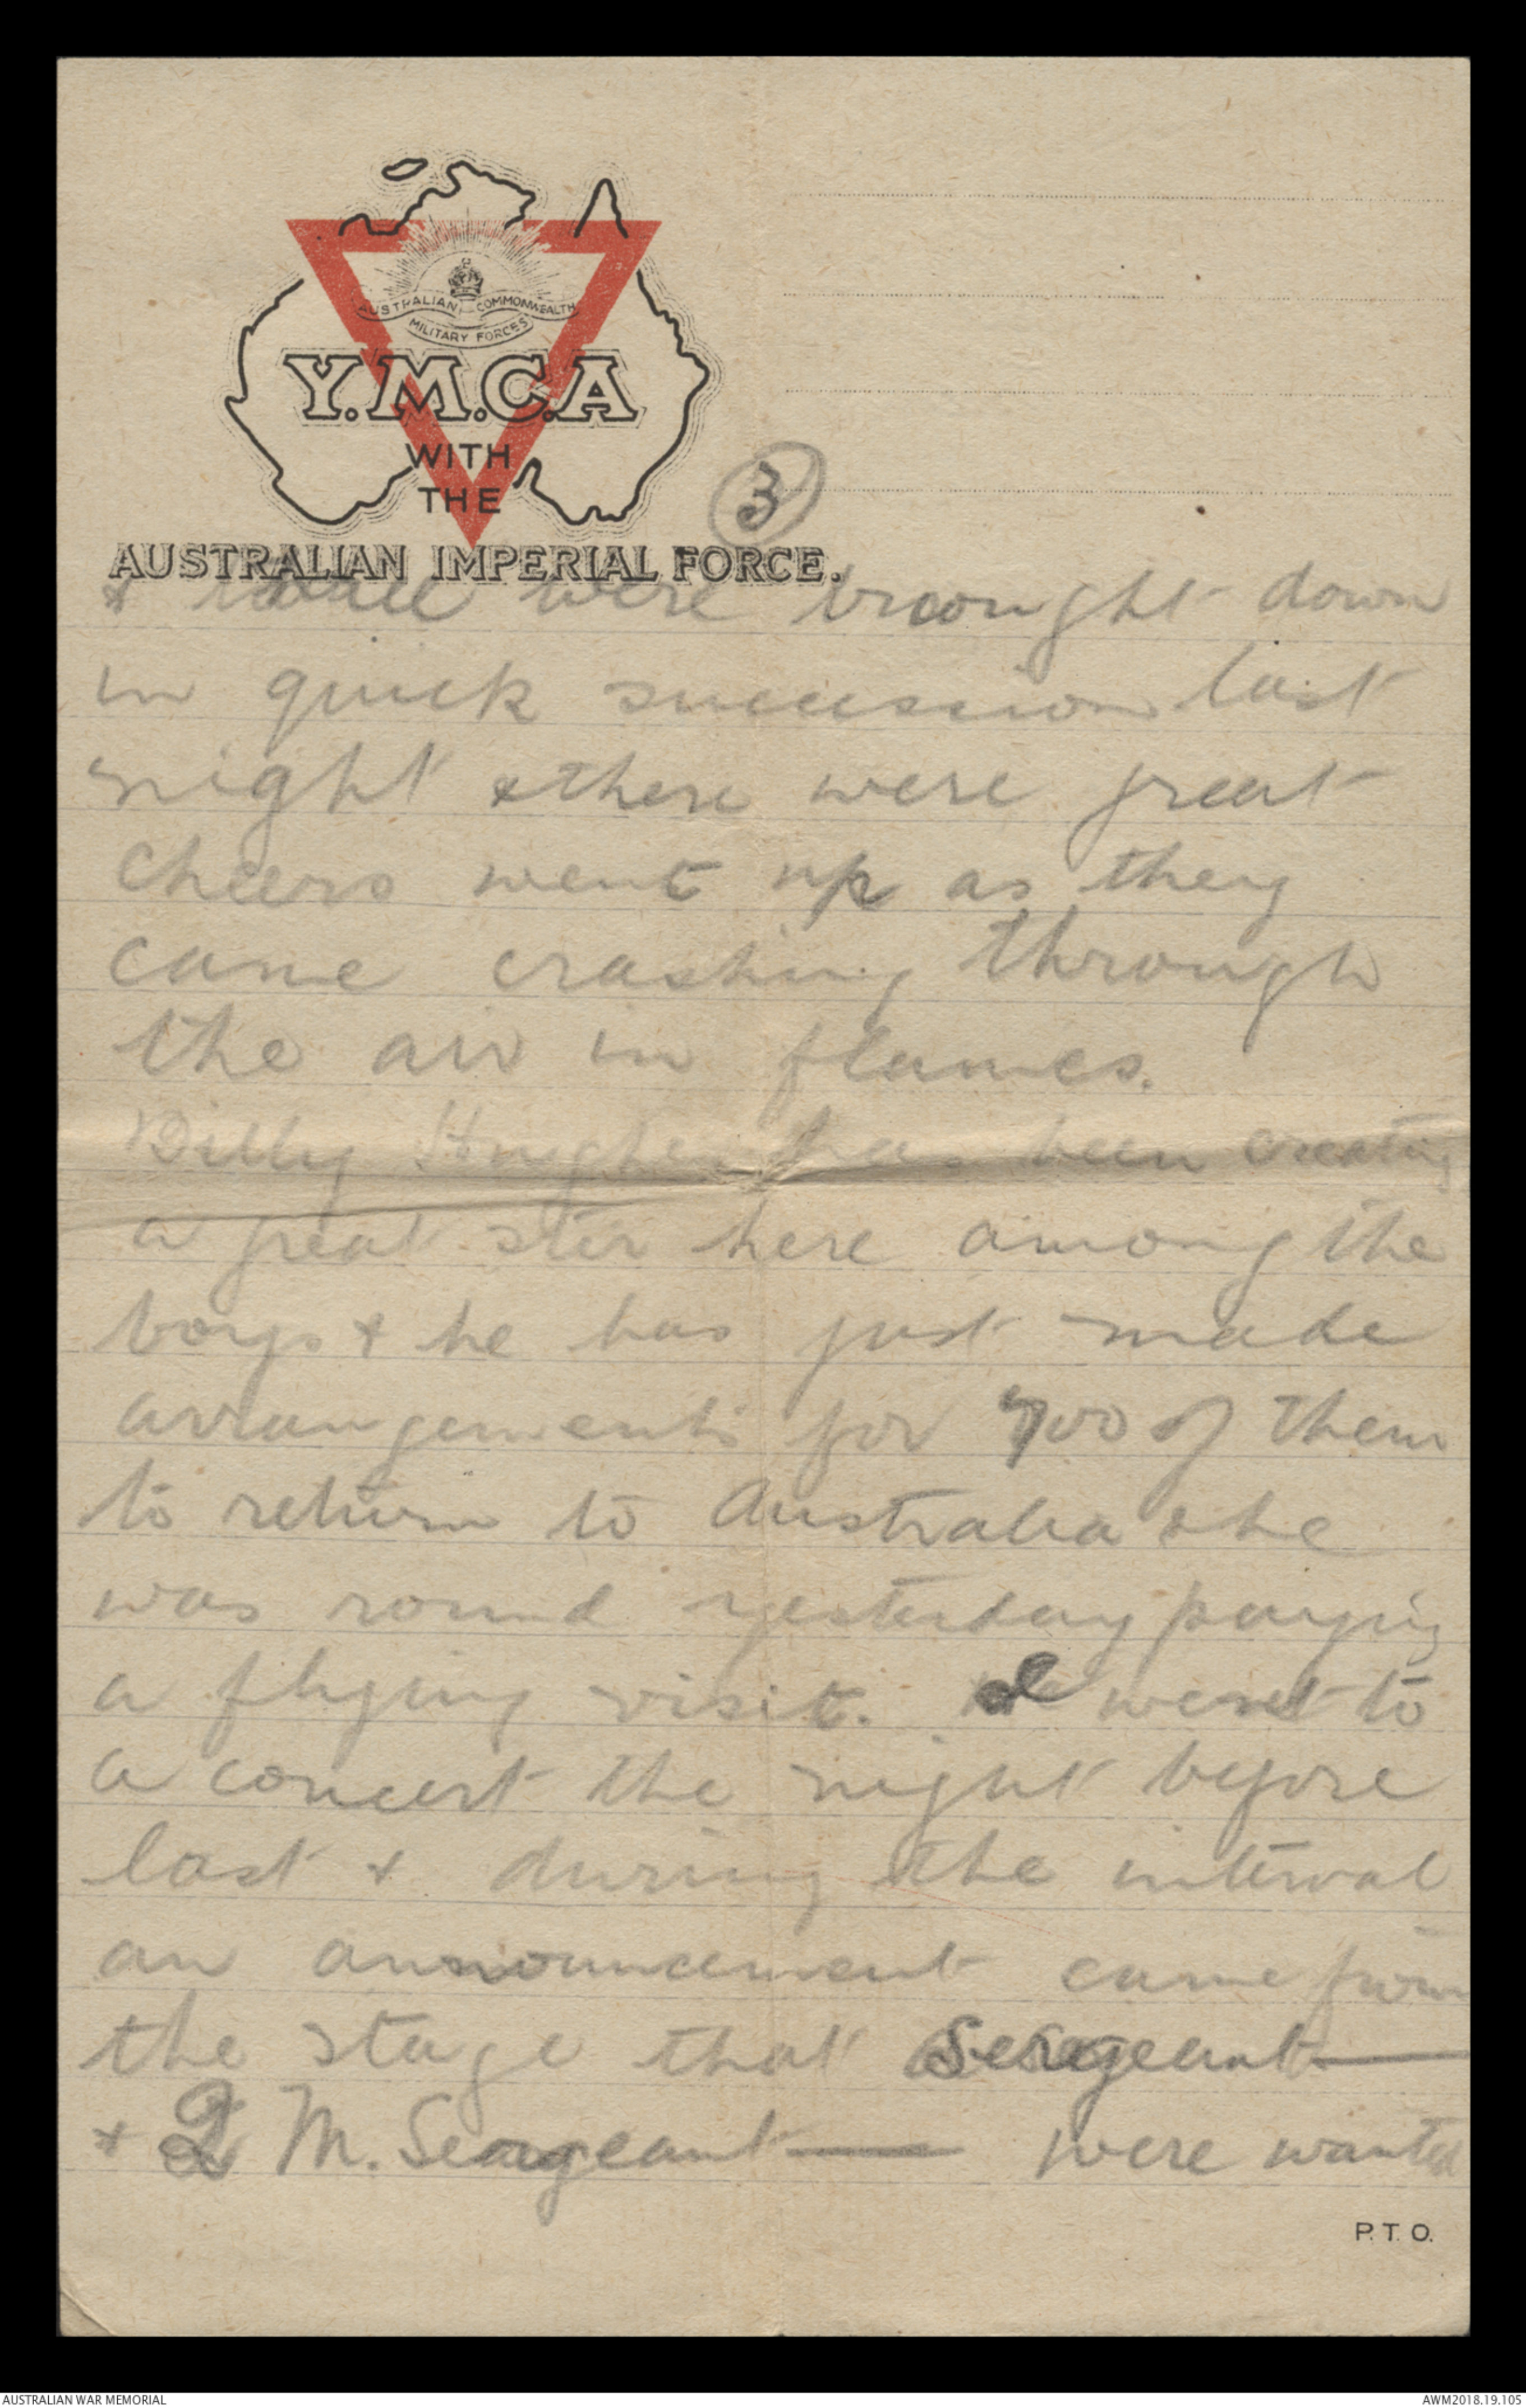 AUSTRALIAN COMMONWEALTH
MILITARY FORCES
Y.M.C.A
WITH
THE
AUSTRALIAN IMPERIAL FORCE.
3
& were brought down
in quick succession last
night & there were great
cheers went up as they
came crashing through
the air in flames.
Billy Hughes has been creating
a great stir here among the
boys & he has just made
arrangements for 700 of them
to return to Australia & he
was round yesterday paying
a flying visit. I went to
a concert the night before
last & during the interval
an announcement came from
the stage that Sergeant —
& Q M. Sergeant — were wanted
P.T.O.
AUSTRALIAN WAR MEMORIAL
AWM2018.19.105